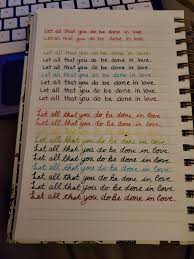 Let all that you do be done in love.
Let all that you do be done in love.
Let all that you do be done in love.
Let all that you do be done in love.
Let all that you do be done in love.
Let all that you do be done in love.
Let all that you do be done in love.
Let all that you do be done in love.
Let all that you do be done in love.
Let all that you do be done in love.
Let all that you do be done in love.
Let all that you do be done in love.
Let all that you do be done in love.
Let all that you do be done in love.
Let all that you do be done in love.
Let all that you do be done in love.
Let all that you do be done in love.
Let all that you do be done in love.